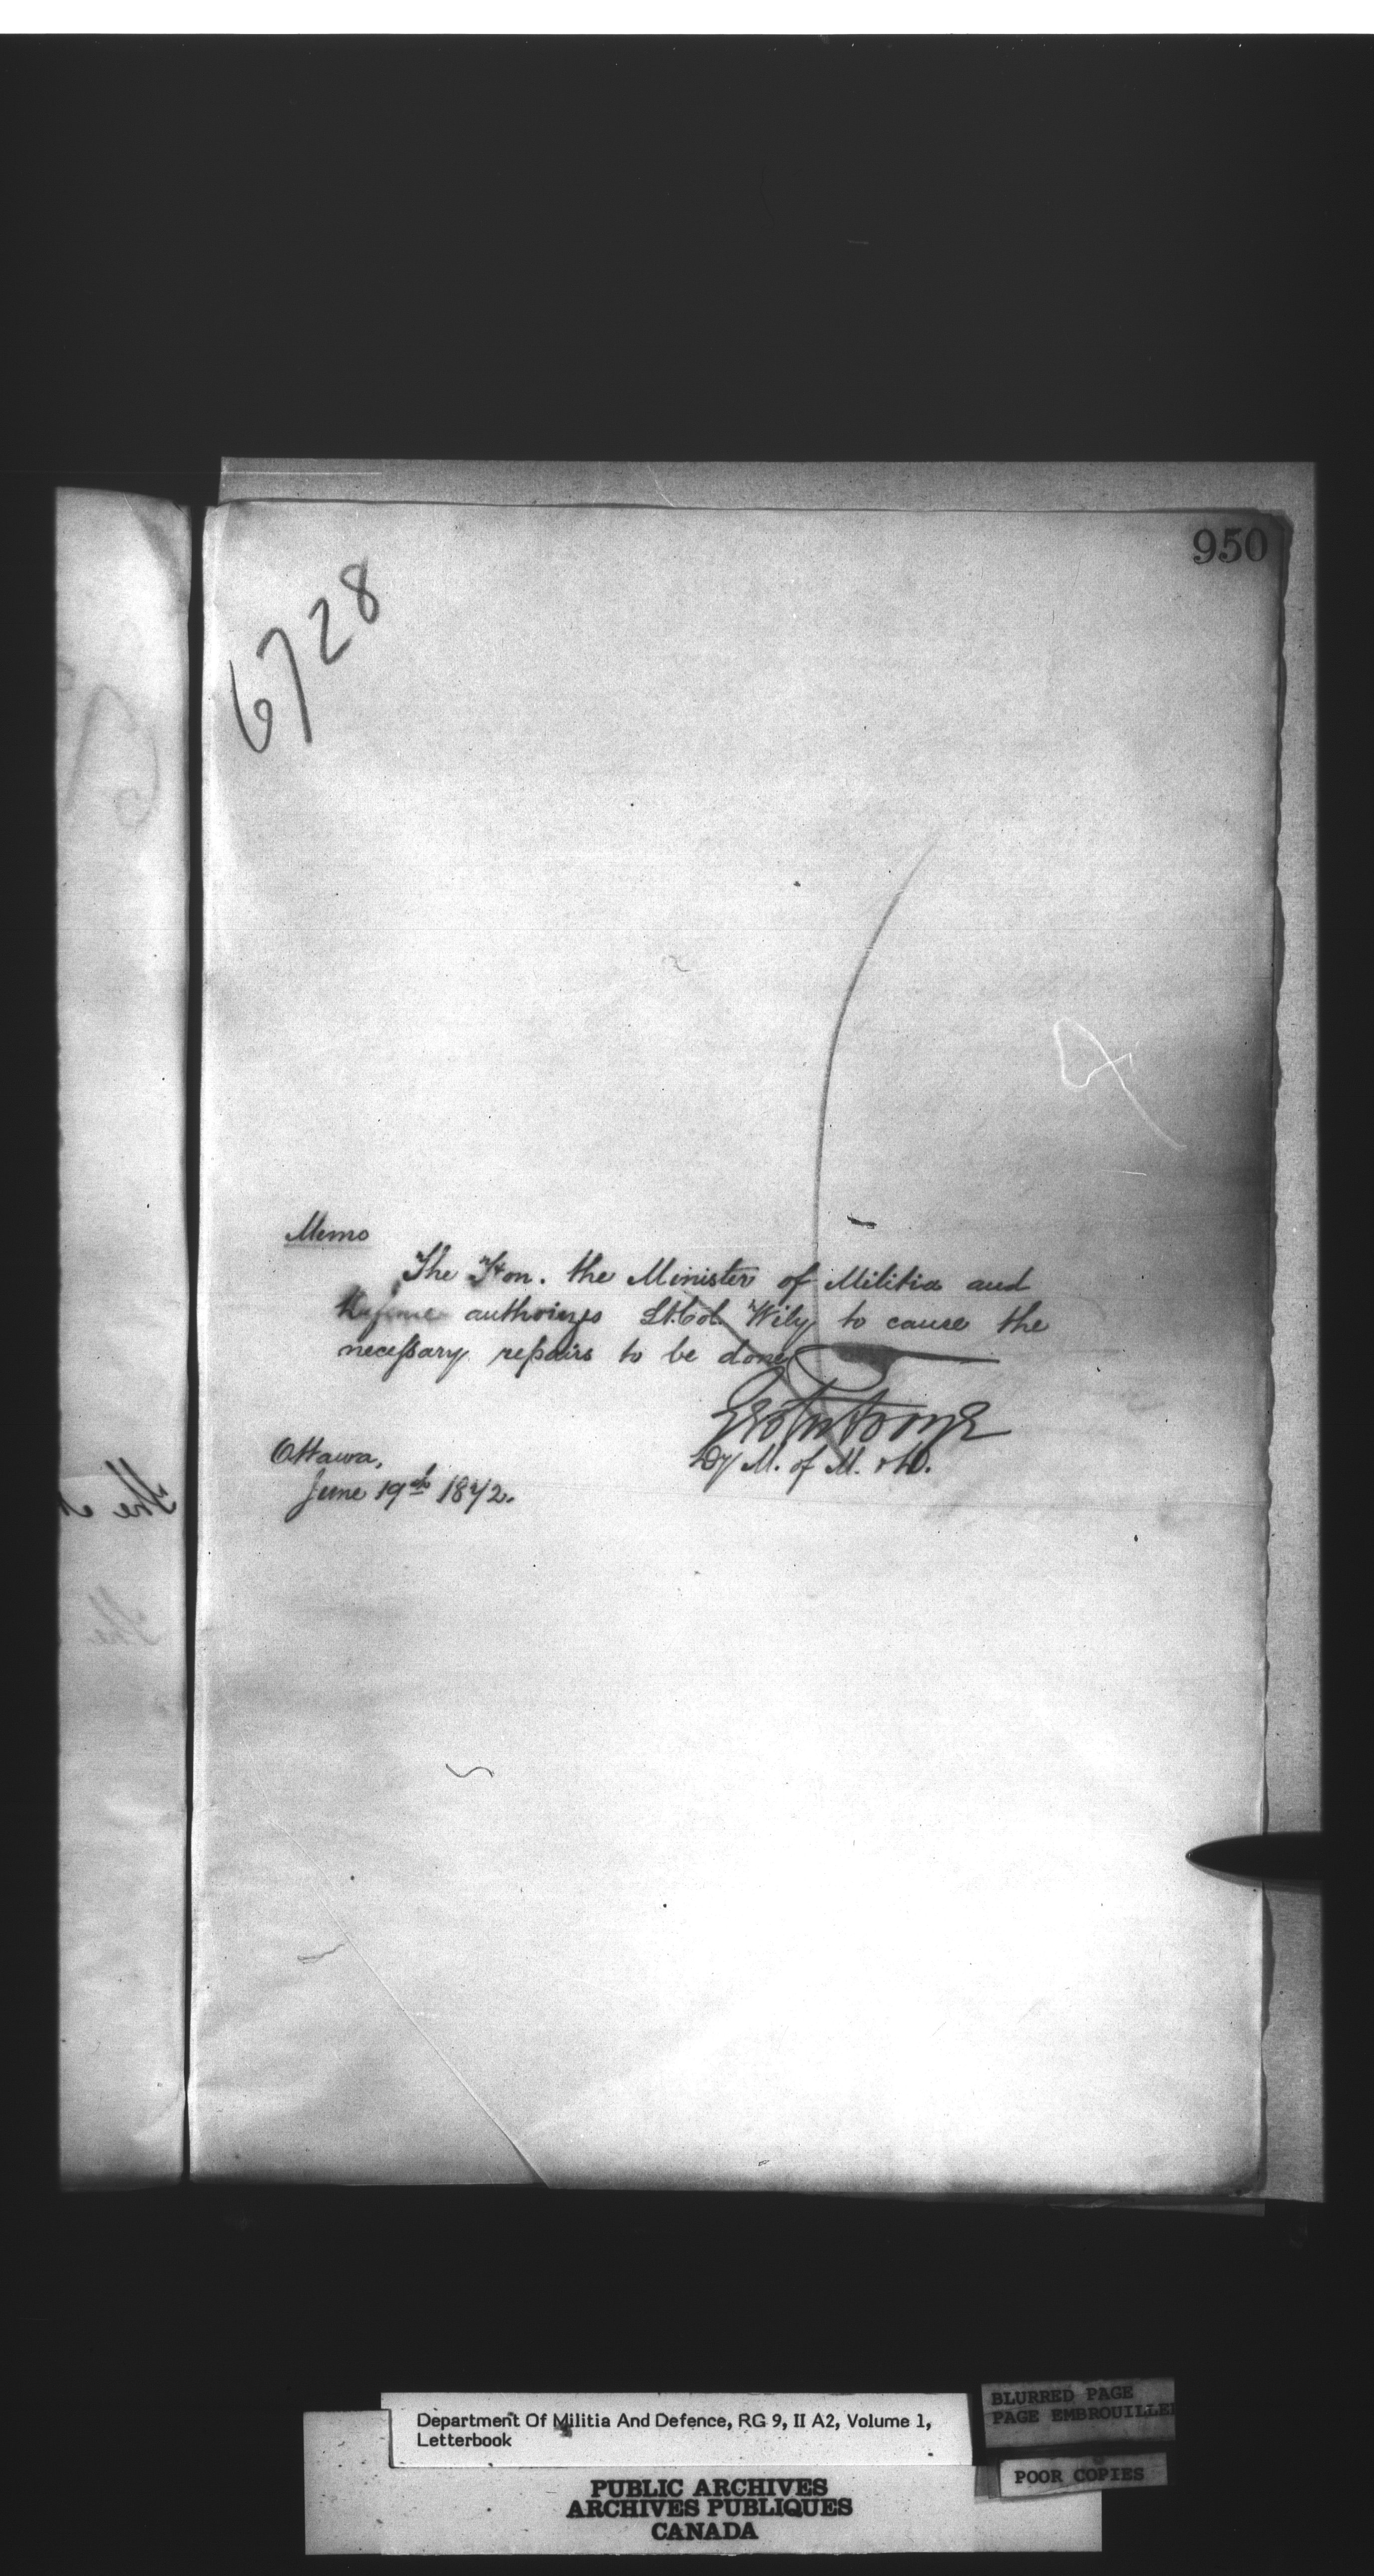 950
6728
Memo
The Hon. the Minister of Militia and
Defence authorizes Lt. Col. Wily to cause the
necessary repairs to be done
Dy M. of M. & D.
Ottawa,
June 19th 1872.
The
The
Department Of Militia And Defence, RG 9, II A2, Volume 1,
Letterbook
BLURRED PAGE
PAGE EMBROUILLEE
POOR COPIES
PUBLIC ARCHIVES
ARCHIVES PUBLIQUES
CANADA